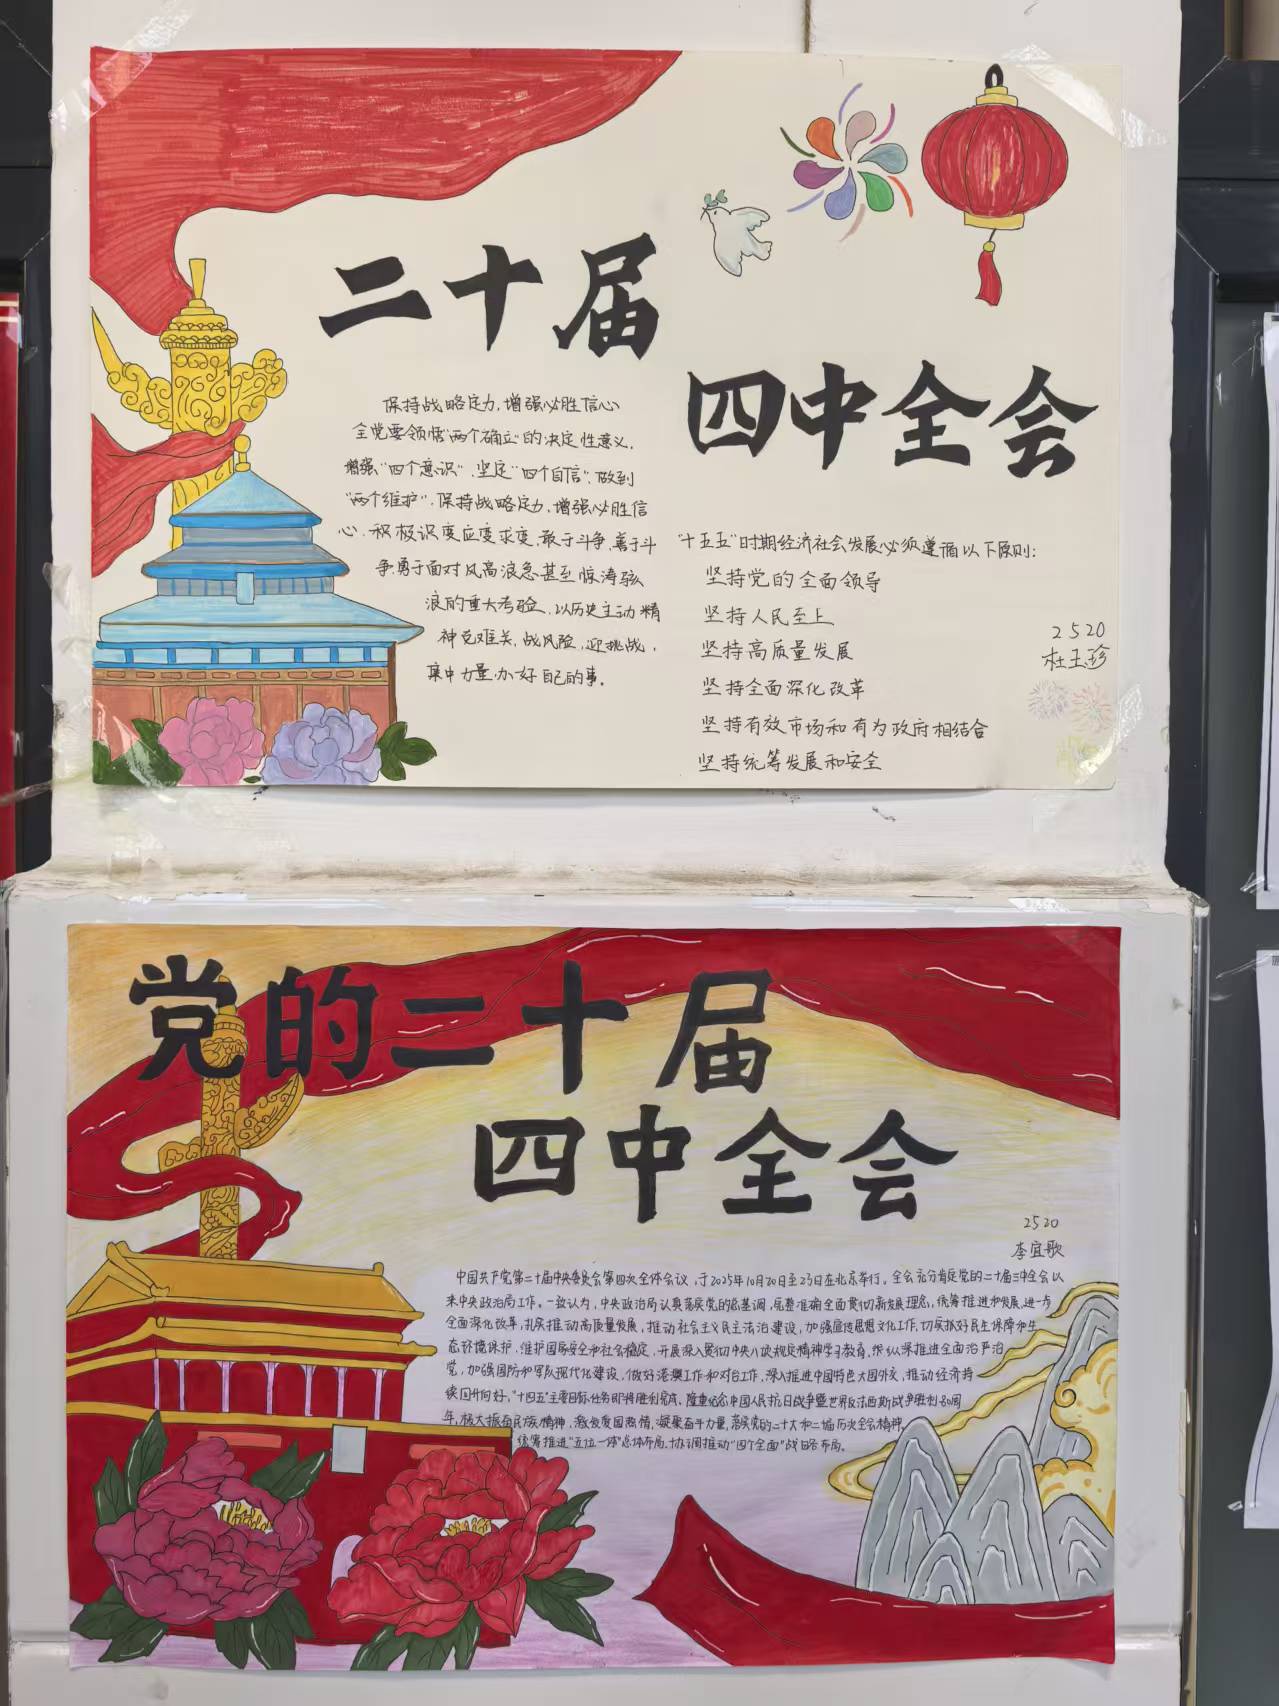 二十届
四中全会
保持战略定力,增强必胜信心
全党要领悟“两个确立”的决定性意义,
增强“四个意识”、坚定“四个自信”、做到
“两个维护”,保持战略定力,增强必胜信
心,积极识变应变求变,敢于斗争,善于斗
争,勇于面对风高浪急甚至惊涛骇
浪的重大考验,以历史主动精
神克难关,战风险,迎挑战,
集中力量办好自己的事。
“十五五”时期经济社会发展必须遵循以下原则:
坚持党的全面领导
坚持人民至上
坚持高质量发展
坚持全面深化改革
坚持有效市场和有为政府相结合
坚持统筹发展和安全
2520
杜玉珍
党的二十届
四中全会
2520
李宜歌
中国共产党第二十届中央委员会第四次全体会议,于2025年10月20日至23日在北京举行。全会充分肯定党的二十届三中全会以
来中央政治局工作。一致认为,中央政治局认真落实党的总基调,完整准确全面贯彻新发展理念,统筹推进和发展,进一步
全面深化改革,扎实推动高质量发展,推动社会主义民主法治建设,加强宣传思想文化工作,切实抓好民生保障和生
态环境保护,维护国家安全和社会稳定,开展深入贯彻中央八项规定精神学习教育,纵深推进全面治严治
党,加强国防和军队现代化建设,做好港澳工作和对台工作,深入推进中国特色大国外交,推动经济持
续回升向好,“十四五”主要目标任务即将胜利完成。隆重纪念中国人民抗日战争暨世界反法西斯战争胜利80周
年,极大振奋民族精神,激发爱国热情,凝聚奋斗力量,落实党的二十大和二十届历次全会精神,
统筹推进“五位一体”总体布局,协调推动“四个全面”战略布局。